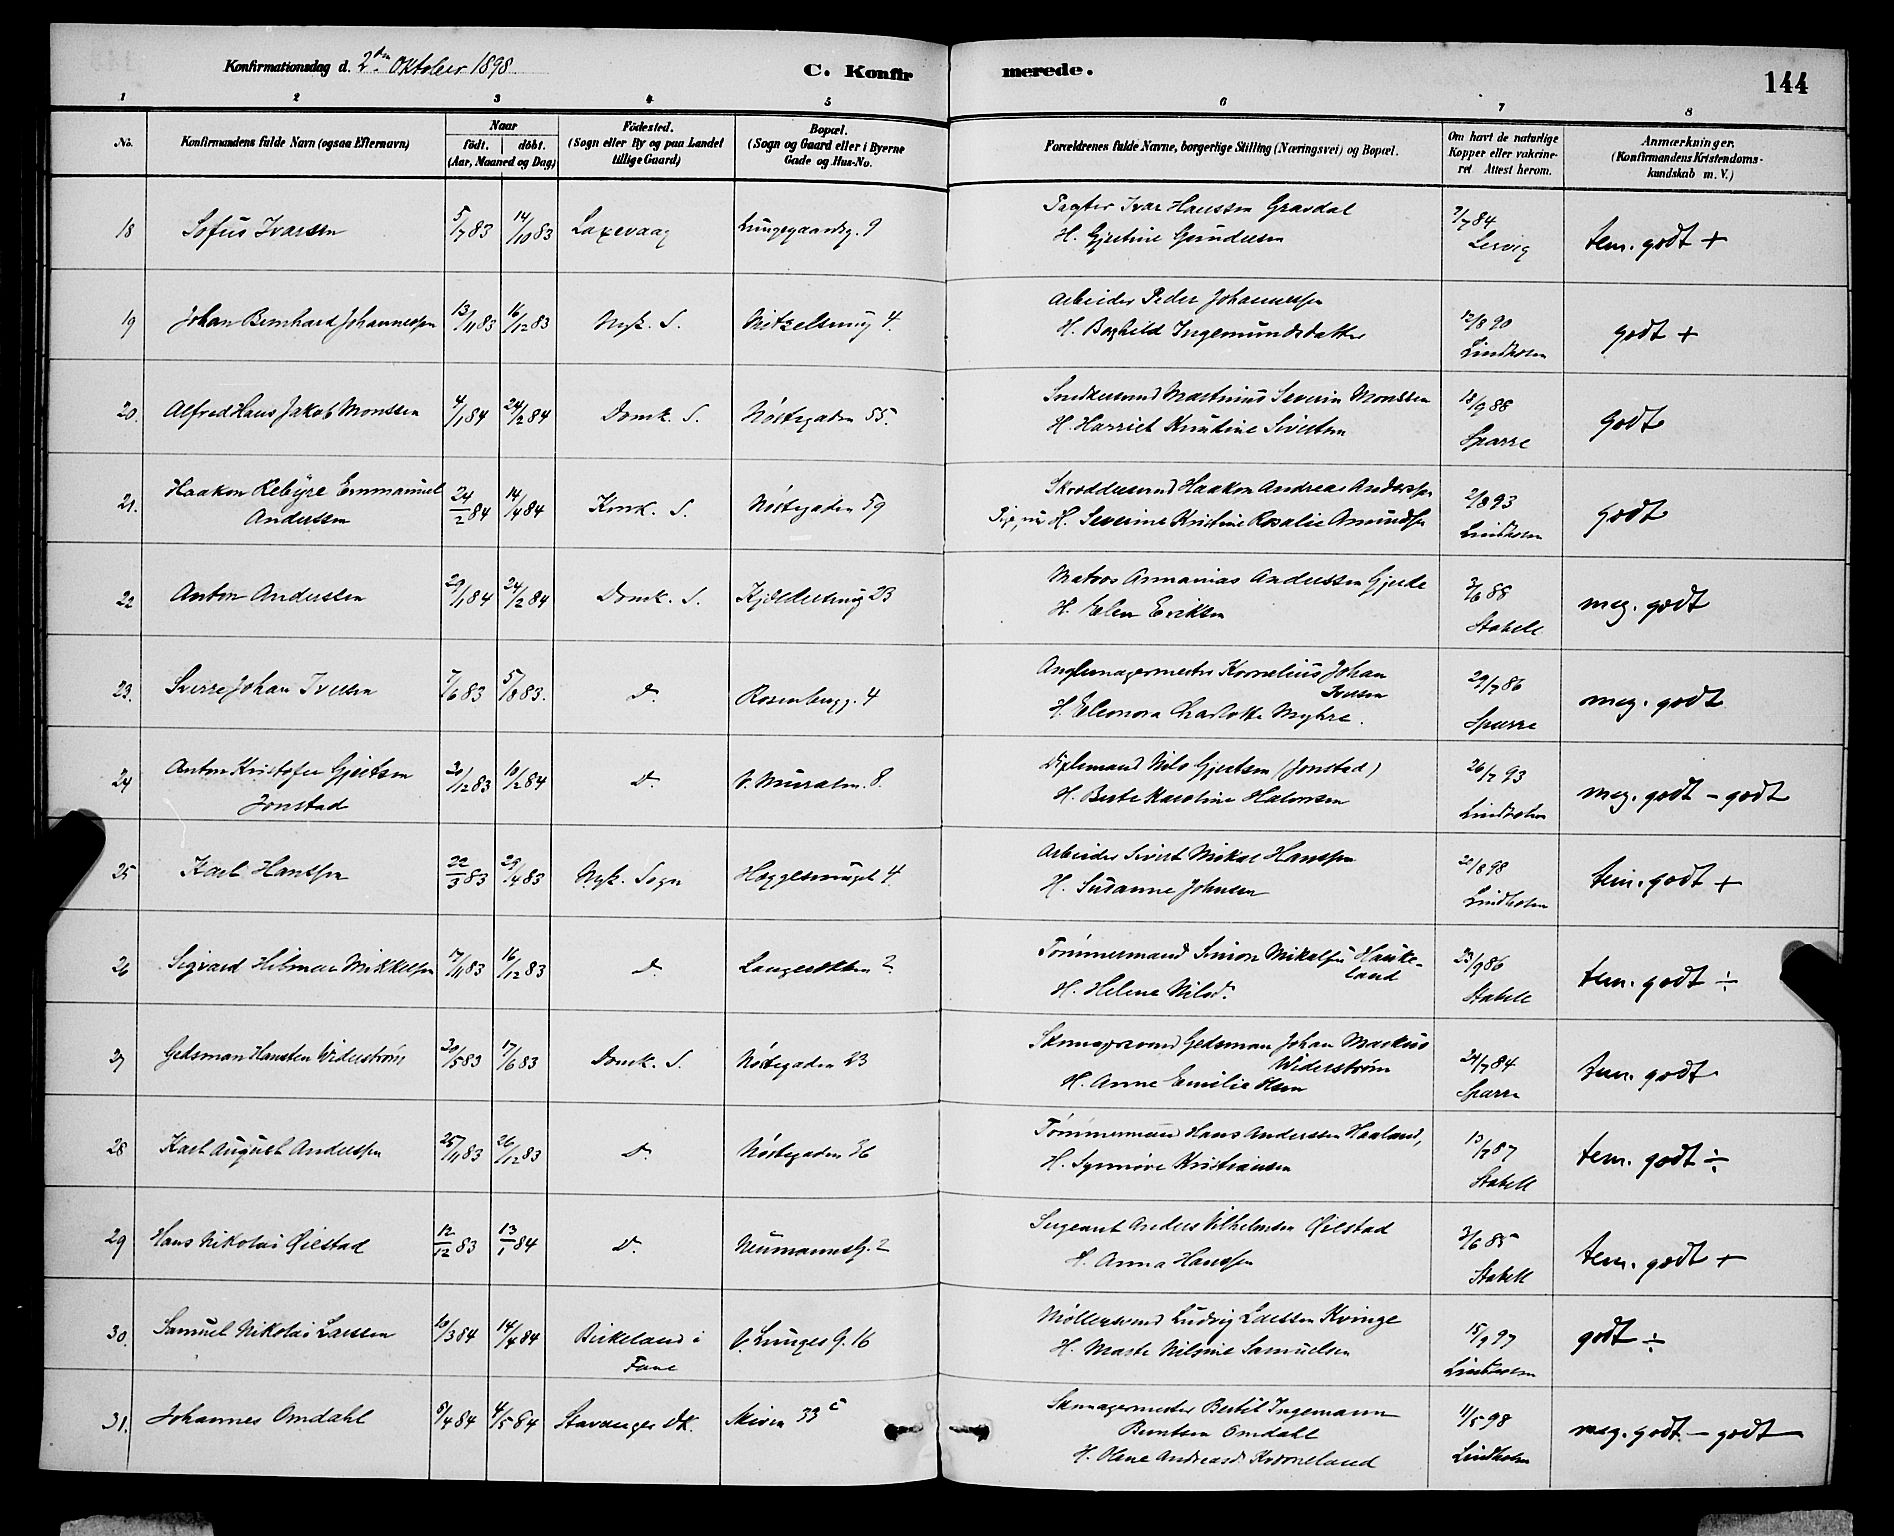 Konfirmationsdag d. 2den Oktober 1898
C. Konfirmerede.
144
1 2 3 4 5 6 7 8
No.
Konfirmandens fulde Navn (ogsaa Efternavn)
Naar
födt. döbt.
(Aar, Maaned og Dag)
Födested.
(Sogn eller By og paa Landet
tillige Gaard)
Bopæl.
(Sogn og Gaard eller i Byerne
Gade og Hus-No.
Forældrenes fulde Navne, borgerlige Stilling (Næringsvei) og Bopæl.
Om havt de naturlige
Kopper eller vakcine-
ret Attest herom.
Anmærkninger.
(Konfirmandens Kristendoms-
kundskab m. V.)
18 Sofus Ivarsen 5/7 83 14/10 83 Laxevaag Lungegaardsg. 9
Pagter Ivar Hanssen Gravdal
H. Gjertine Gundersen
9/7 84
Lervig
tem. godt +
19 Johan Bernhard Johannessen 13/11 83 16/12 83 Nyk. S. Nitzelsmug 4.
Arbeider Peder Johannessen
H. Borghild Ingemundsdatter
12/8 90
Lindholm
godt +
20. Alfred Hans Jakob Monssen 4/1 84 24/2 84 Domk. S. Nöstegaden 55.
Snedkersvend Martinus Severin Monssen
H. Harriet Kristine Sivertsen
18/9 88
Sparre
godt
21. Haakon Rebyre Emmanuel
Anderssen
24/2 84 14/4 84 Korsk. S. Nöstegaden 59
Skræddersvend Haakon Andreas Anderssen
H. Severine Kristine Rosalie Amundsen
2/8 93
Lindholm
godt
22 Anton Anderssen 29/1 84 24/2 84 Domk. S. Kjeldersmug 23
Matros Annanias Anderssen Gjerde
H. Elen Eriksen
3/6 88
Stabell
meg. godt
23. Sverre Johan Iversen 7/6 83 5/8 83. D. Rosenbergg. 4
Anglemagermester Kornelius Johan
Iversen
H. Eleonora Charlotte Myhre.
29/7 86
Sparre
meg. godt
24 Anton Kristofer Gjertsen
Jonstad
20/12 83 10/2 84 D. V. Muralm. 8.
Dixlemand Nils Gjertsen (Jonstad)
H. Berte Karoline Halvorsen
26/7 93
Lindholm
meg. godt - godt
25 Karl Hanssen 22/3 83 29/4 83 Nyk. Sogn Heggesmuget 4.
Arbeider Sivert Mikal Hanssen
H. Susanne Johnsen
20/8 98
Lindholm
tem. godt +
26 Sigvard Hilmar Mikkelsen 17/11 83 16/12 83 D. Langerækken 2
Tømmermand Simon Mikalsen Hauke-
land
H. Helene Nilsd.
23/9 86
Stabell
tem. godt ÷
27 Gedsman Hansten Widerström 30/5 83 17/6 83 Domk. S. Nöstegaden 23
Skomagersvend Gedsman Johan Markus
Widerström
H. Anne Emilie Olsen
24/7 84
Sparre
tem. godt
28 Karl August Anderssen 25/11 83 26/12 83 D. Nöstegaden 36
Tømmermand Hans Anderssen Haaland,
H. Synnöve Kristiansen
13/7 87
Stabell
tem. godt ÷
29 Hans Nikolai Öiestad 12/12 83 13/1 84 D. Neumannsg. 2
Sergeant Anders Vilhelmsen Öiestad
H. Anna Hanssen
3/6 85
Stabell
tem. godt +
30. Samuel Nikolai Larssen 10/3 84 14/4 84 Birkeland i
Fane
V. Lunges G. 16
Møllersvend Ludvig Larssen Kvinge
H. Marte Nilsine Samuelsen
15/9 97
Lindholm
godt ÷
31. Johannes Omdahl 8/4 84 4/5 84 Stavanger Dk. Skiven 33 c
Skomagermester Bertil Ingemann
Berntsen Omdahl
H. Oline Andreasd. Kvorneland
11/5 98
Lindholm
meg. godt - godt